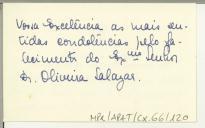 Vossa Excelência as mais sen-
tidas condolências pelo fa-
lecimento do Exmo Senhor
Dr. Oliveira Salazar.
MPR/APAT/Cx.66/120